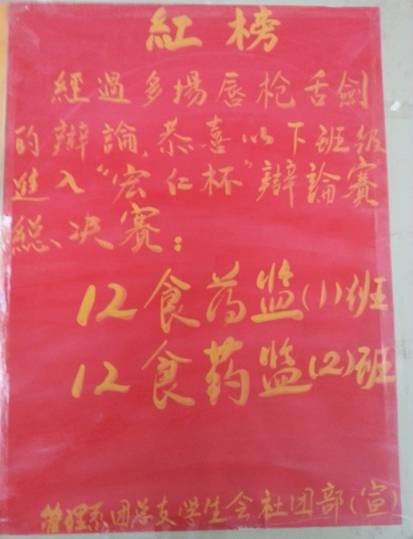 紅榜
經過多場唇枪舌劍
的辯論,恭喜以下班级
進入“宏仁杯”辯論賽
總决賽:
12食药监(1)班
12食药监(2)班
管理系团总支学生会社团部(宣)